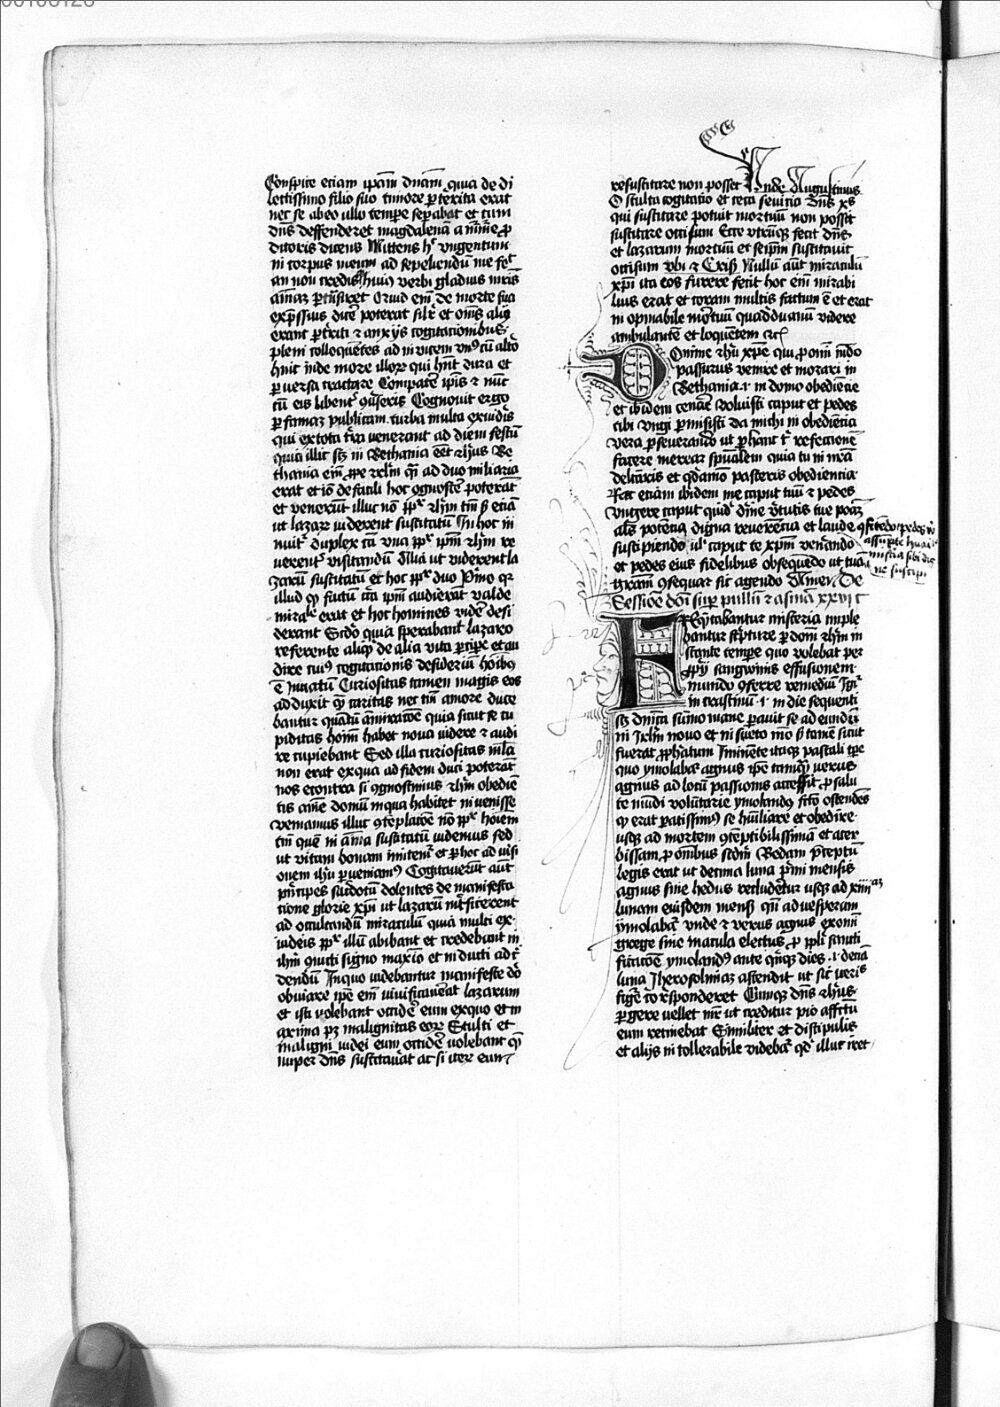 Conspice etiam ipam dnam quia de di
lectissimo filio suo timore ꝑterita erat
nec se ab eo ullo tempe sepabat et cum
dns deffenderet magdalenā a nimie ꝓ
ditoris dicens Mittens hec vngentum
in corpus meum ad sepeliendū me fecit
an non credis huius verbi gladius mris
aīam ꝑtrāsiret Quid em de morte sua
exp̄ssius dice poterat silr et oms alij
erant ꝑtriti et anxijs cogitacionibus
pleni colloquētes ad in vicem vnꝰ cū altero
hinc inde more illoꝝ qui hnt dura et
ꝑversa tractare Compatere ipīs et nūc
cū eis libent
Cognouit ergo
ꝑ famam publicam turba multa ex iudeis
qui ex tota terra venerant ad diem festū
quia illic scz in Bethania eēt Ihus Be
thania em ꝓpe irlm qͣ ad duo miliaria
erat et iō de facili hoc ꝯgnosce poterāt
et venerūt illuc nō ppͭ ihm tm sꝫ etiā
ut lazaꝝ viderent suscitatū In hoc in
nuitͬ duplex cā vna ppͭ ipm ihm re
verent visitandū Alia ut viderent la
zarū suscitatū et hoc ppͭ duo Pͥmo qꝛ
illud qꝫ factū erat ipm audierat valde
mirale erat et hoc homines videre desi
derant Scdo quia sperabant lazaro
referente aliqͥd de alia vita ꝑcipe et au
dire cuiꝰ cogitationis desiderium hoibꝫ
ē innatū Curiositas tamen magis eos
adduxit qͣ caritas nec tm amore duce
bantur quātū admiracoe quia sicut se cu
piditas homi habet noua videre et audi
re cupiebant Sed illa curiositas mala
non erat ex qua ad fidem duci poterāt
nos econtra si ꝯgnoscimus ihm obedie
tis aīe domū in qua habitet invenisse
veniamus illuc ꝯteplacoe nō ppͭ hoiem
tm quē in aīma suscitatū videmus sed
ut vitam bonam imitemͬ et ꝑ hoc ad visi
onem ihu ꝑueniamꝰ Cogitauerūt aut
pͥncipes sacdotū dolentes de manifesta
tione glorie xpi ut lazarū intficerent
ad occultandū miraculū quia multi ex
iudeis ppͭ illū abibant et credebant in
ihm qui tali signo maxio et inducti ad cre
dendū In quo videbantur manifeste deo
obuiare ipe em viuificauerat lazarum
et isti volebant occidere eum ex quo et m
axima pꝫ malignitas eoꝝ Stulti et
maligni iudei eum occidere volebant qͥ
nuper dns suscitauerat ac si iterum eum
resuscitare non posset Unde Augustinus
O stulta cogitatio et ceca seuitia Dns xps
qui suscitare potuit mortuū non posset
suscitare occisum Ecce vtrūqꝫ fecit dns
et lazarum mortuū et seipm suscitauit
occisum vbi et Cris Nullū aut miraculū
xpi ita eos furere fecit hoc em mirabi
lius erat et coram multis factum ē et erat
in opinabile mortuū quadduanū videre
ambulantē et loquentem etc
Domine ihu xpe qui ꝓ omi mdo
passurus venire et morari in
Bethania .i. in domo obediencie
et ibidem cenare voluisti caput et pedes
tibi vngi ꝑmisisti da michi in obediencia
vera ꝑseuerando ut
refectionē
facere merear spualem quia tu in mea
delitaris et qdāmo pasceris obediencia
Fac etiam ibidem me caput tuū et pedes
vngere caput quidem diuine virtutis tue
potēcia digna reuerēcia et laude
suscipiendo ul caput te xpm venerando
et pedes eius fidelibus obsequēdo ut tuā
graciam ꝯsequar sic agendo Amen De
Sessioē dni suꝑ pullū et asinā XXVI C
Reptabantur misteria imple
bantur sc̄pture ꝑ dom ihm in
stante tempe quo volebat per
ꝓpij sanguinis effusionem
mundo ꝯferre remediū Igͬ
in crastinū .i. in die sequenti
scz dnica sumo mane parauit se ad eundū
in irlm nouo et in sueto mo sꝫ tamē sicut
fuerat ꝓphatum Iminente itaqꝫ pascali tpe
quo ymolabatͬ agnus ipe tamqͣ verus
agnus ad locū passionis accessit ꝓ salu
te mūdi volūtarie ymolandꝰ scīto ostendes
qꝫ erat paratissimꝰ se hūiliare et obedire
usqꝫ ad mortem ꝯteptibilissimā et acer
bissam ꝓ omibus scdm Bedam p̄ceptū
legis erat ut decima luna pͥmi mensis
agnus siue hedus recluderetur usqꝫ ad xiiij
lunam eiusdem mensꝭ qn ad vesperam
ymolabatͬ vnde et verus agnus ex omi
grege sine macula electus ꝓ ppli sancti
ficacoe ymolandꝰ ante qͥnqꝫ dies .i. decia
luna Iherosolimā ascendit ut sic veris
figure corrsponderet Cumqꝫ dns ihus
ꝑgere vellet mr ut creditur pio affectu
eum retinebat Similiter et discipulis
et alijs intollerabile videbatͬ qd illuc iret